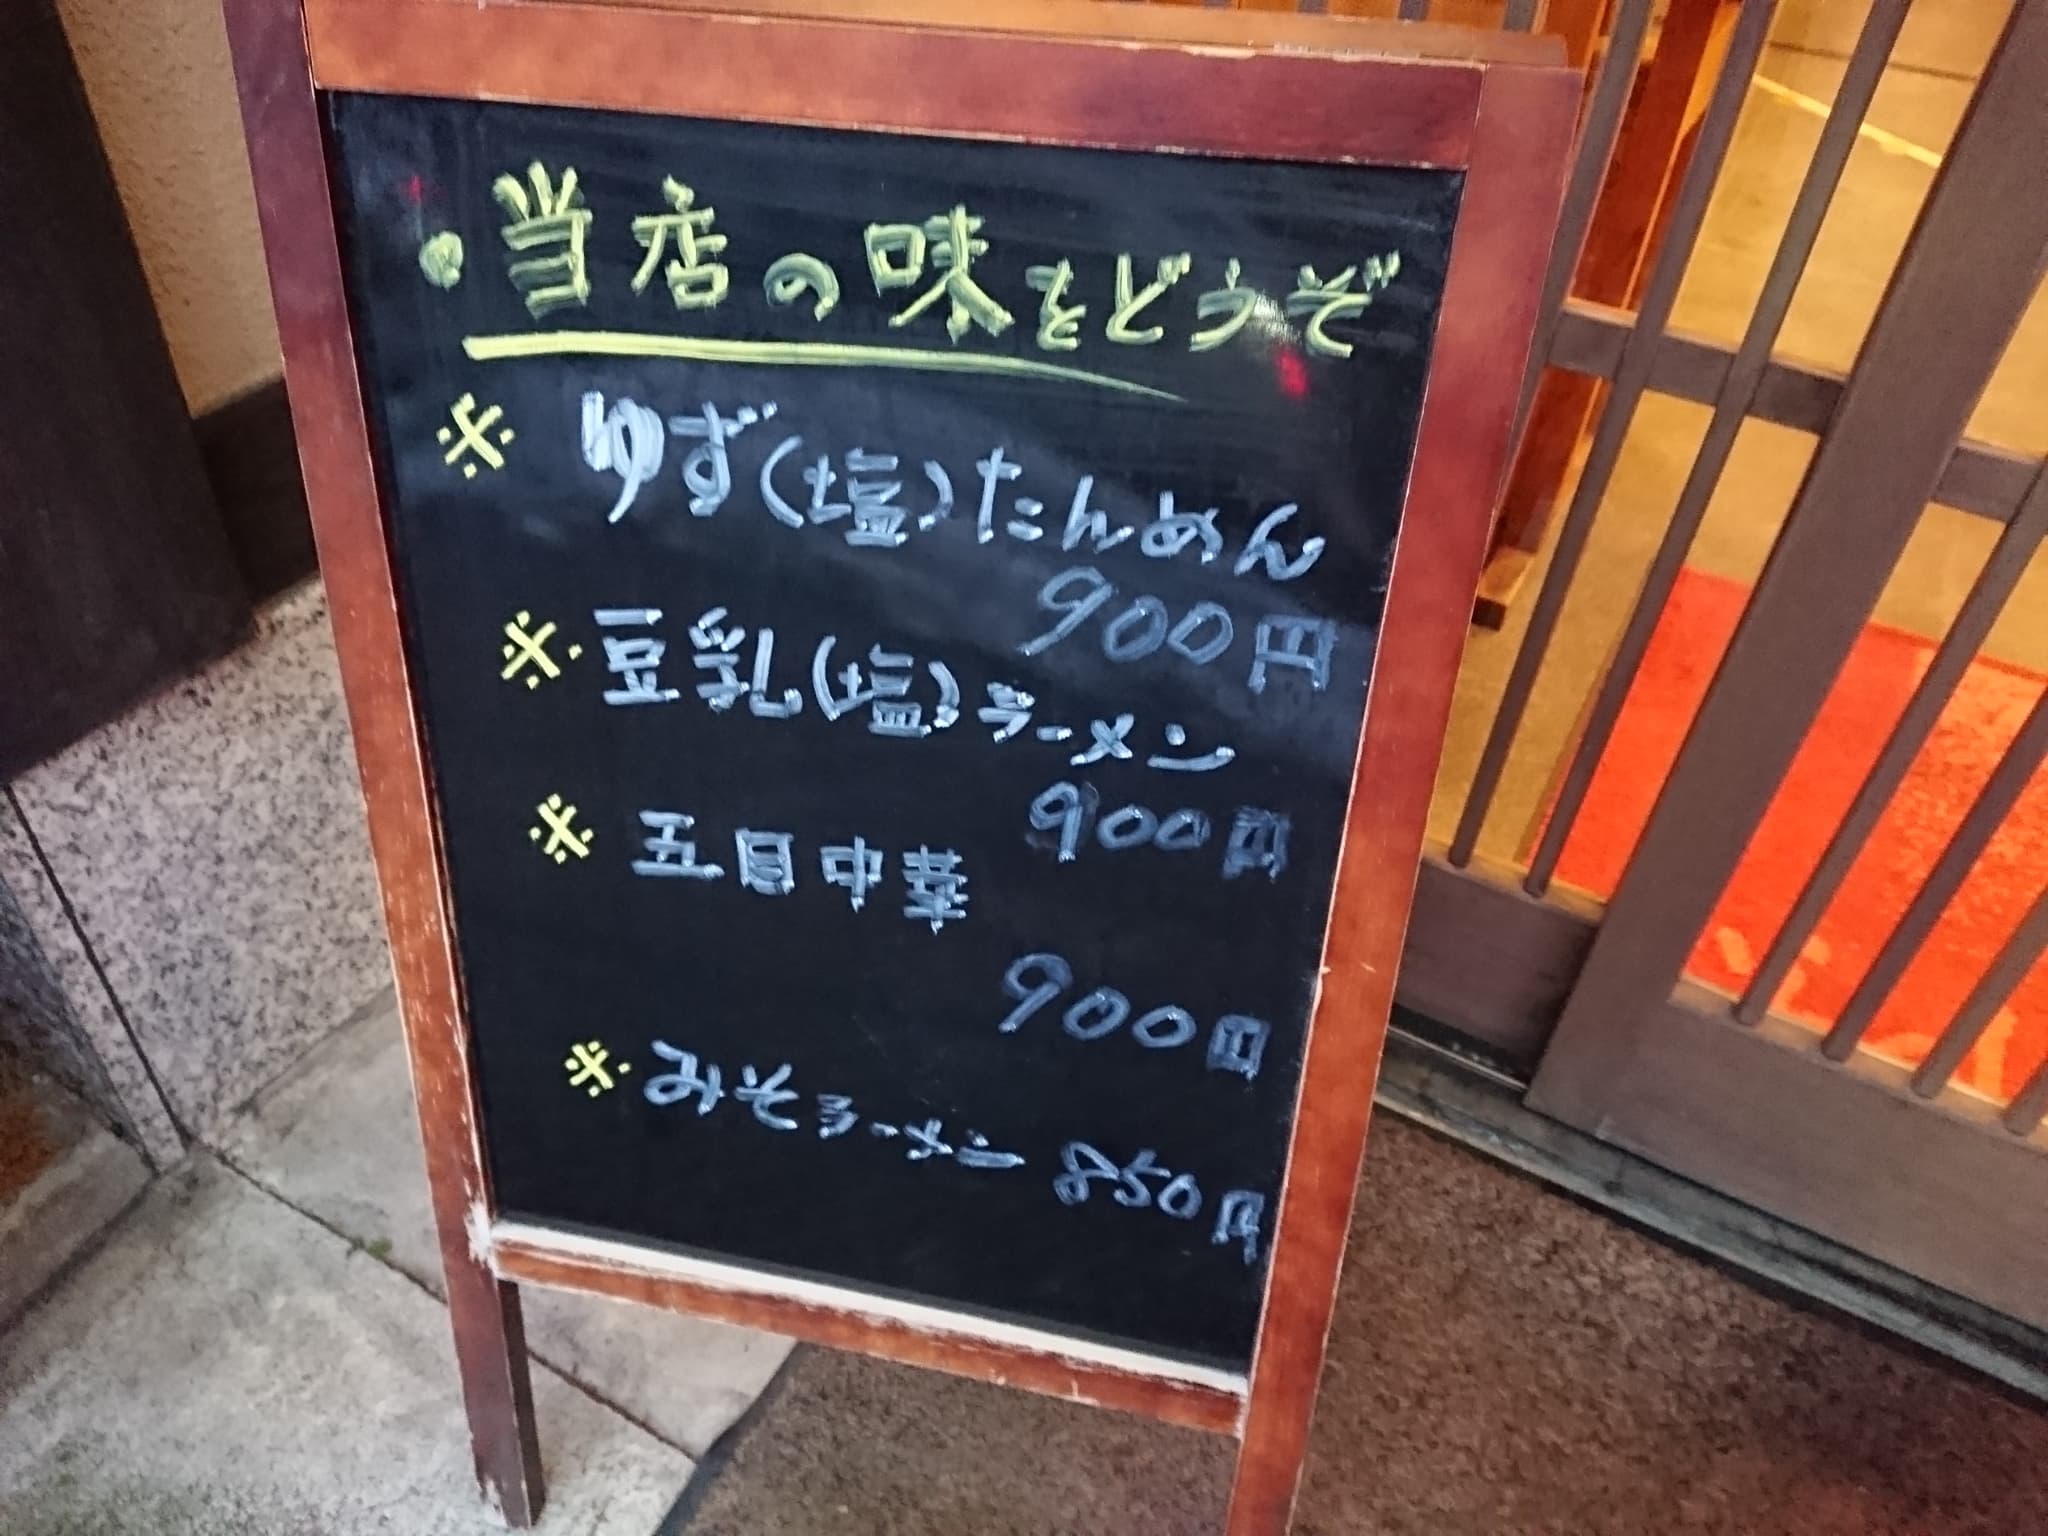 ・当店の味をどうぞ
※ ゆず(塩)たんめん
900円
※ 豆乳(塩)ラーメン
900円
※ 五目中華
900円
※ みそラーメン 850円